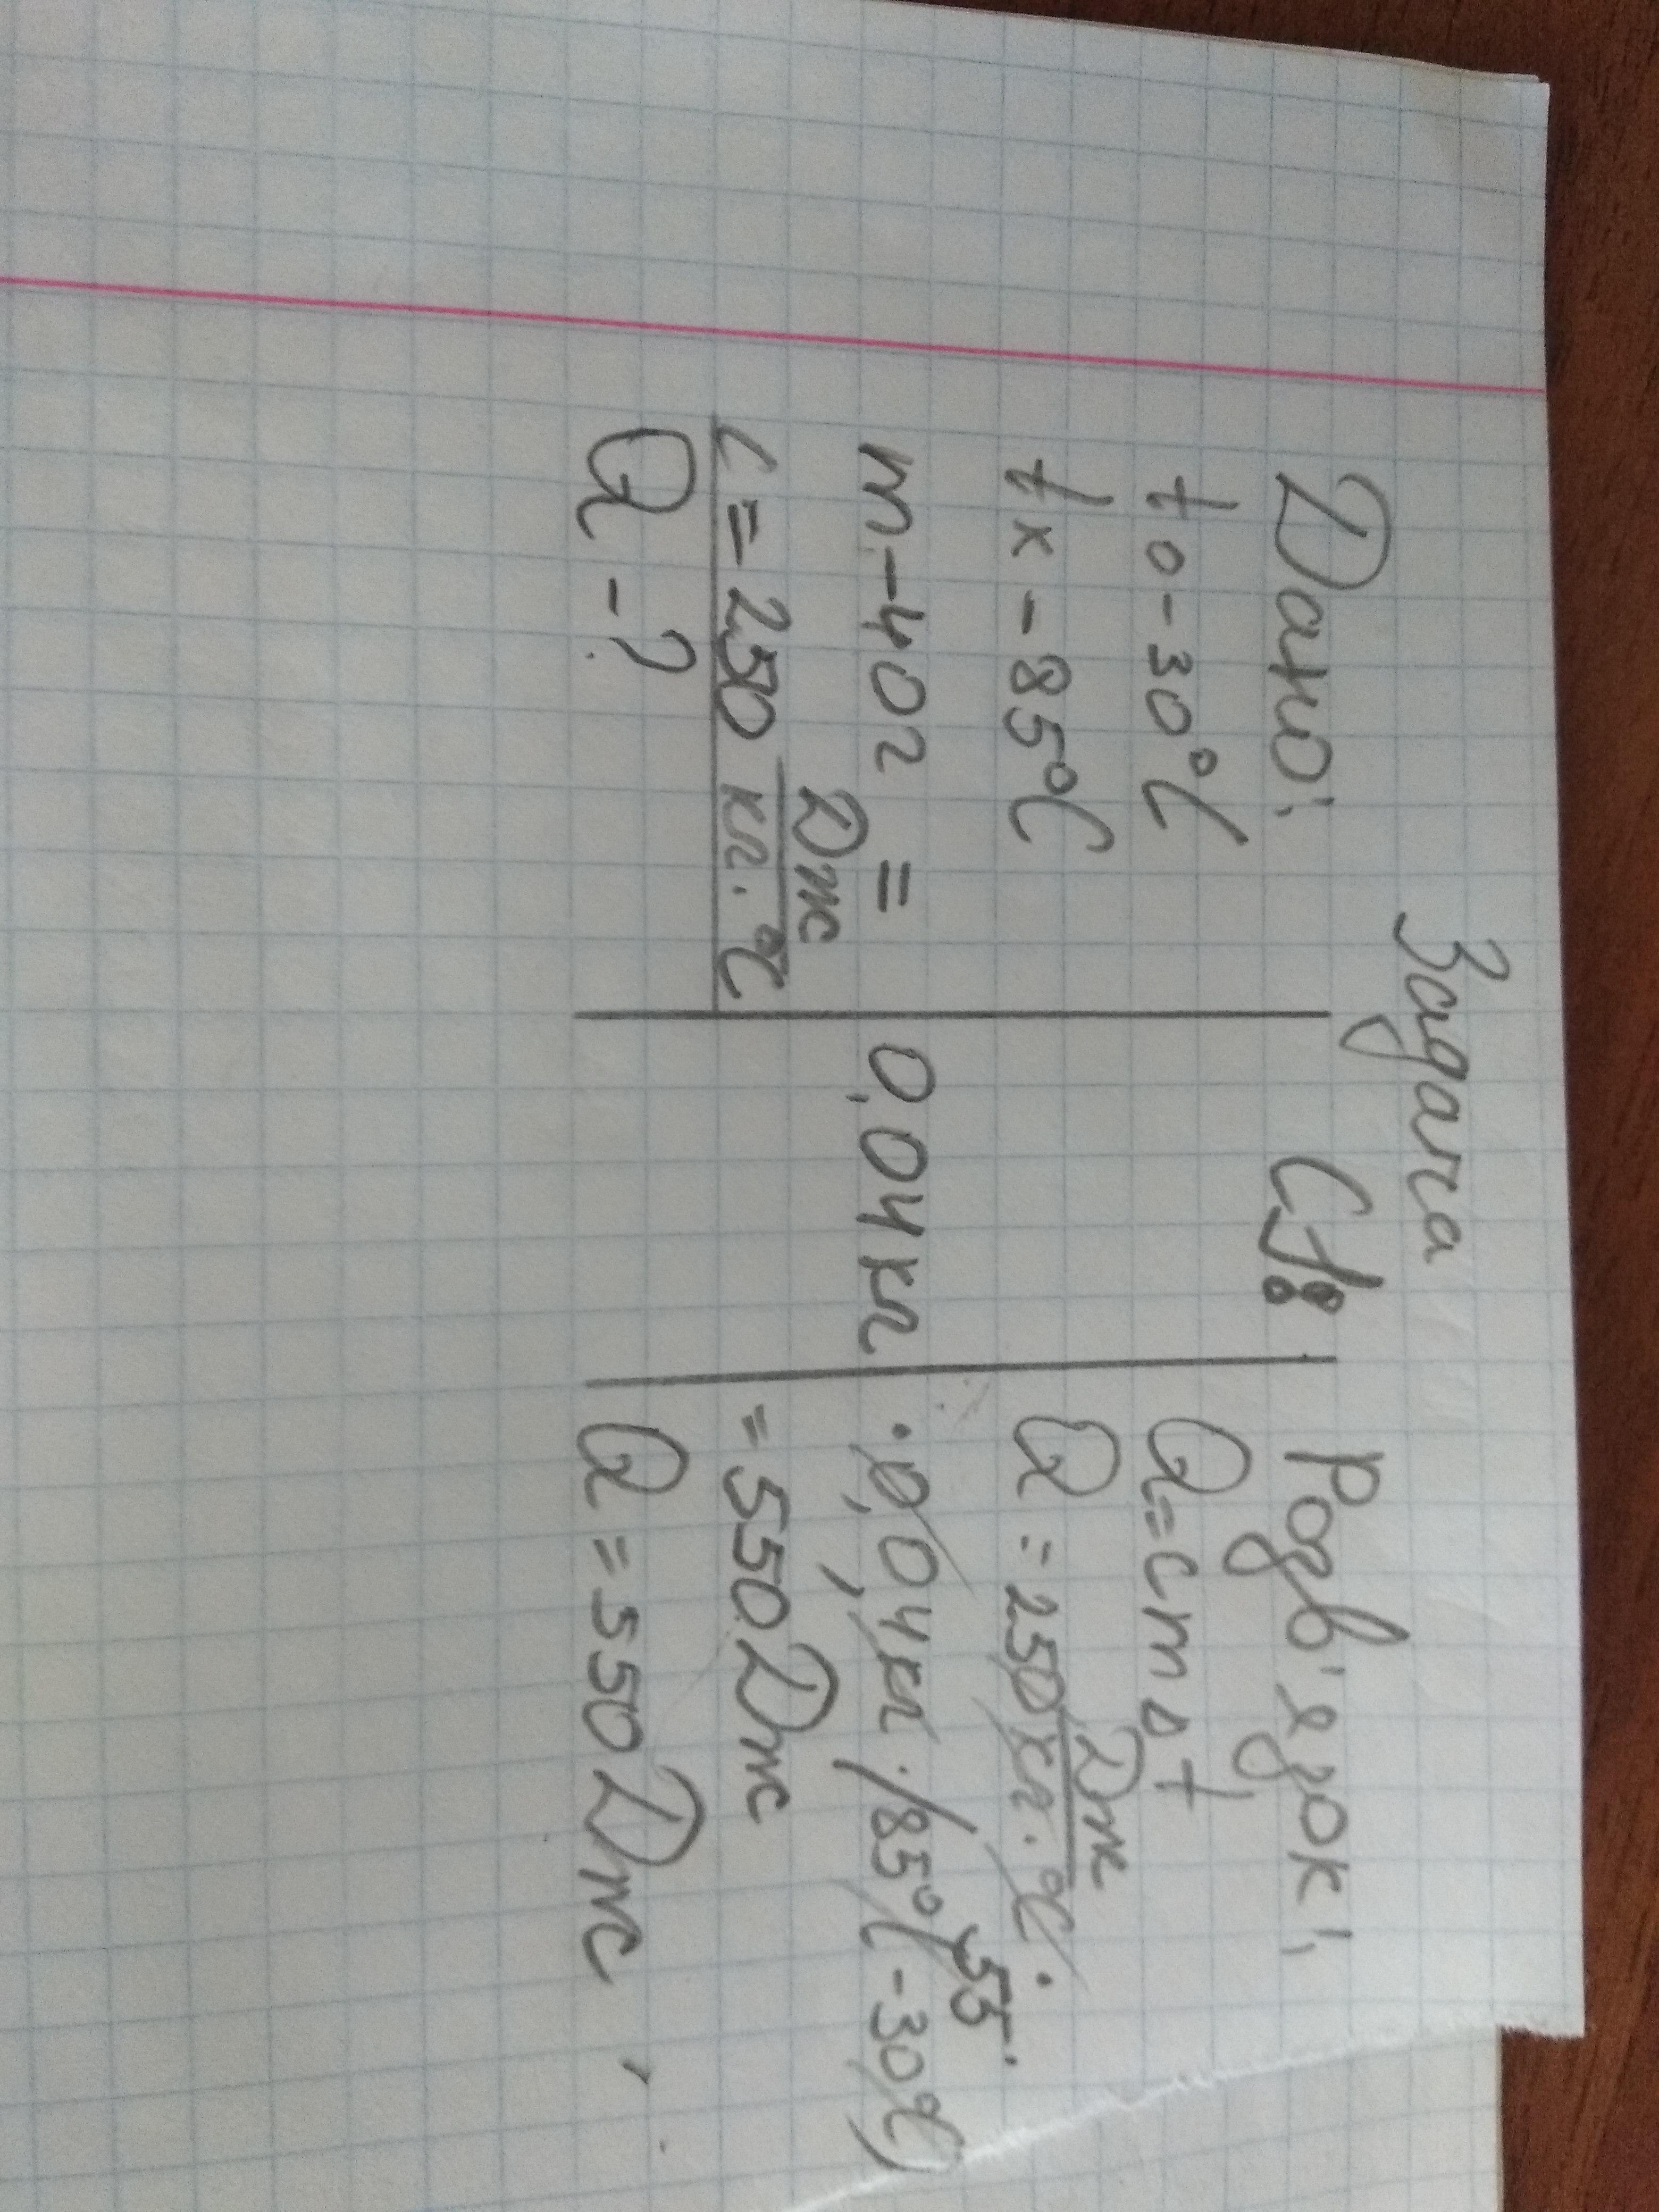 Задача
Дано:
t0 - 30°C
tк - 85°C
m - 40г =
c = 250 Дж/кг·°C
Q - ?
СІ:
0,04кг
Розв'язок:
Q = cm Δt
Q = 250 Дж/кг·°C ·
55
· 0,04кг · (85°C - 30°C)
= 550 Дж
Q = 550 Дж